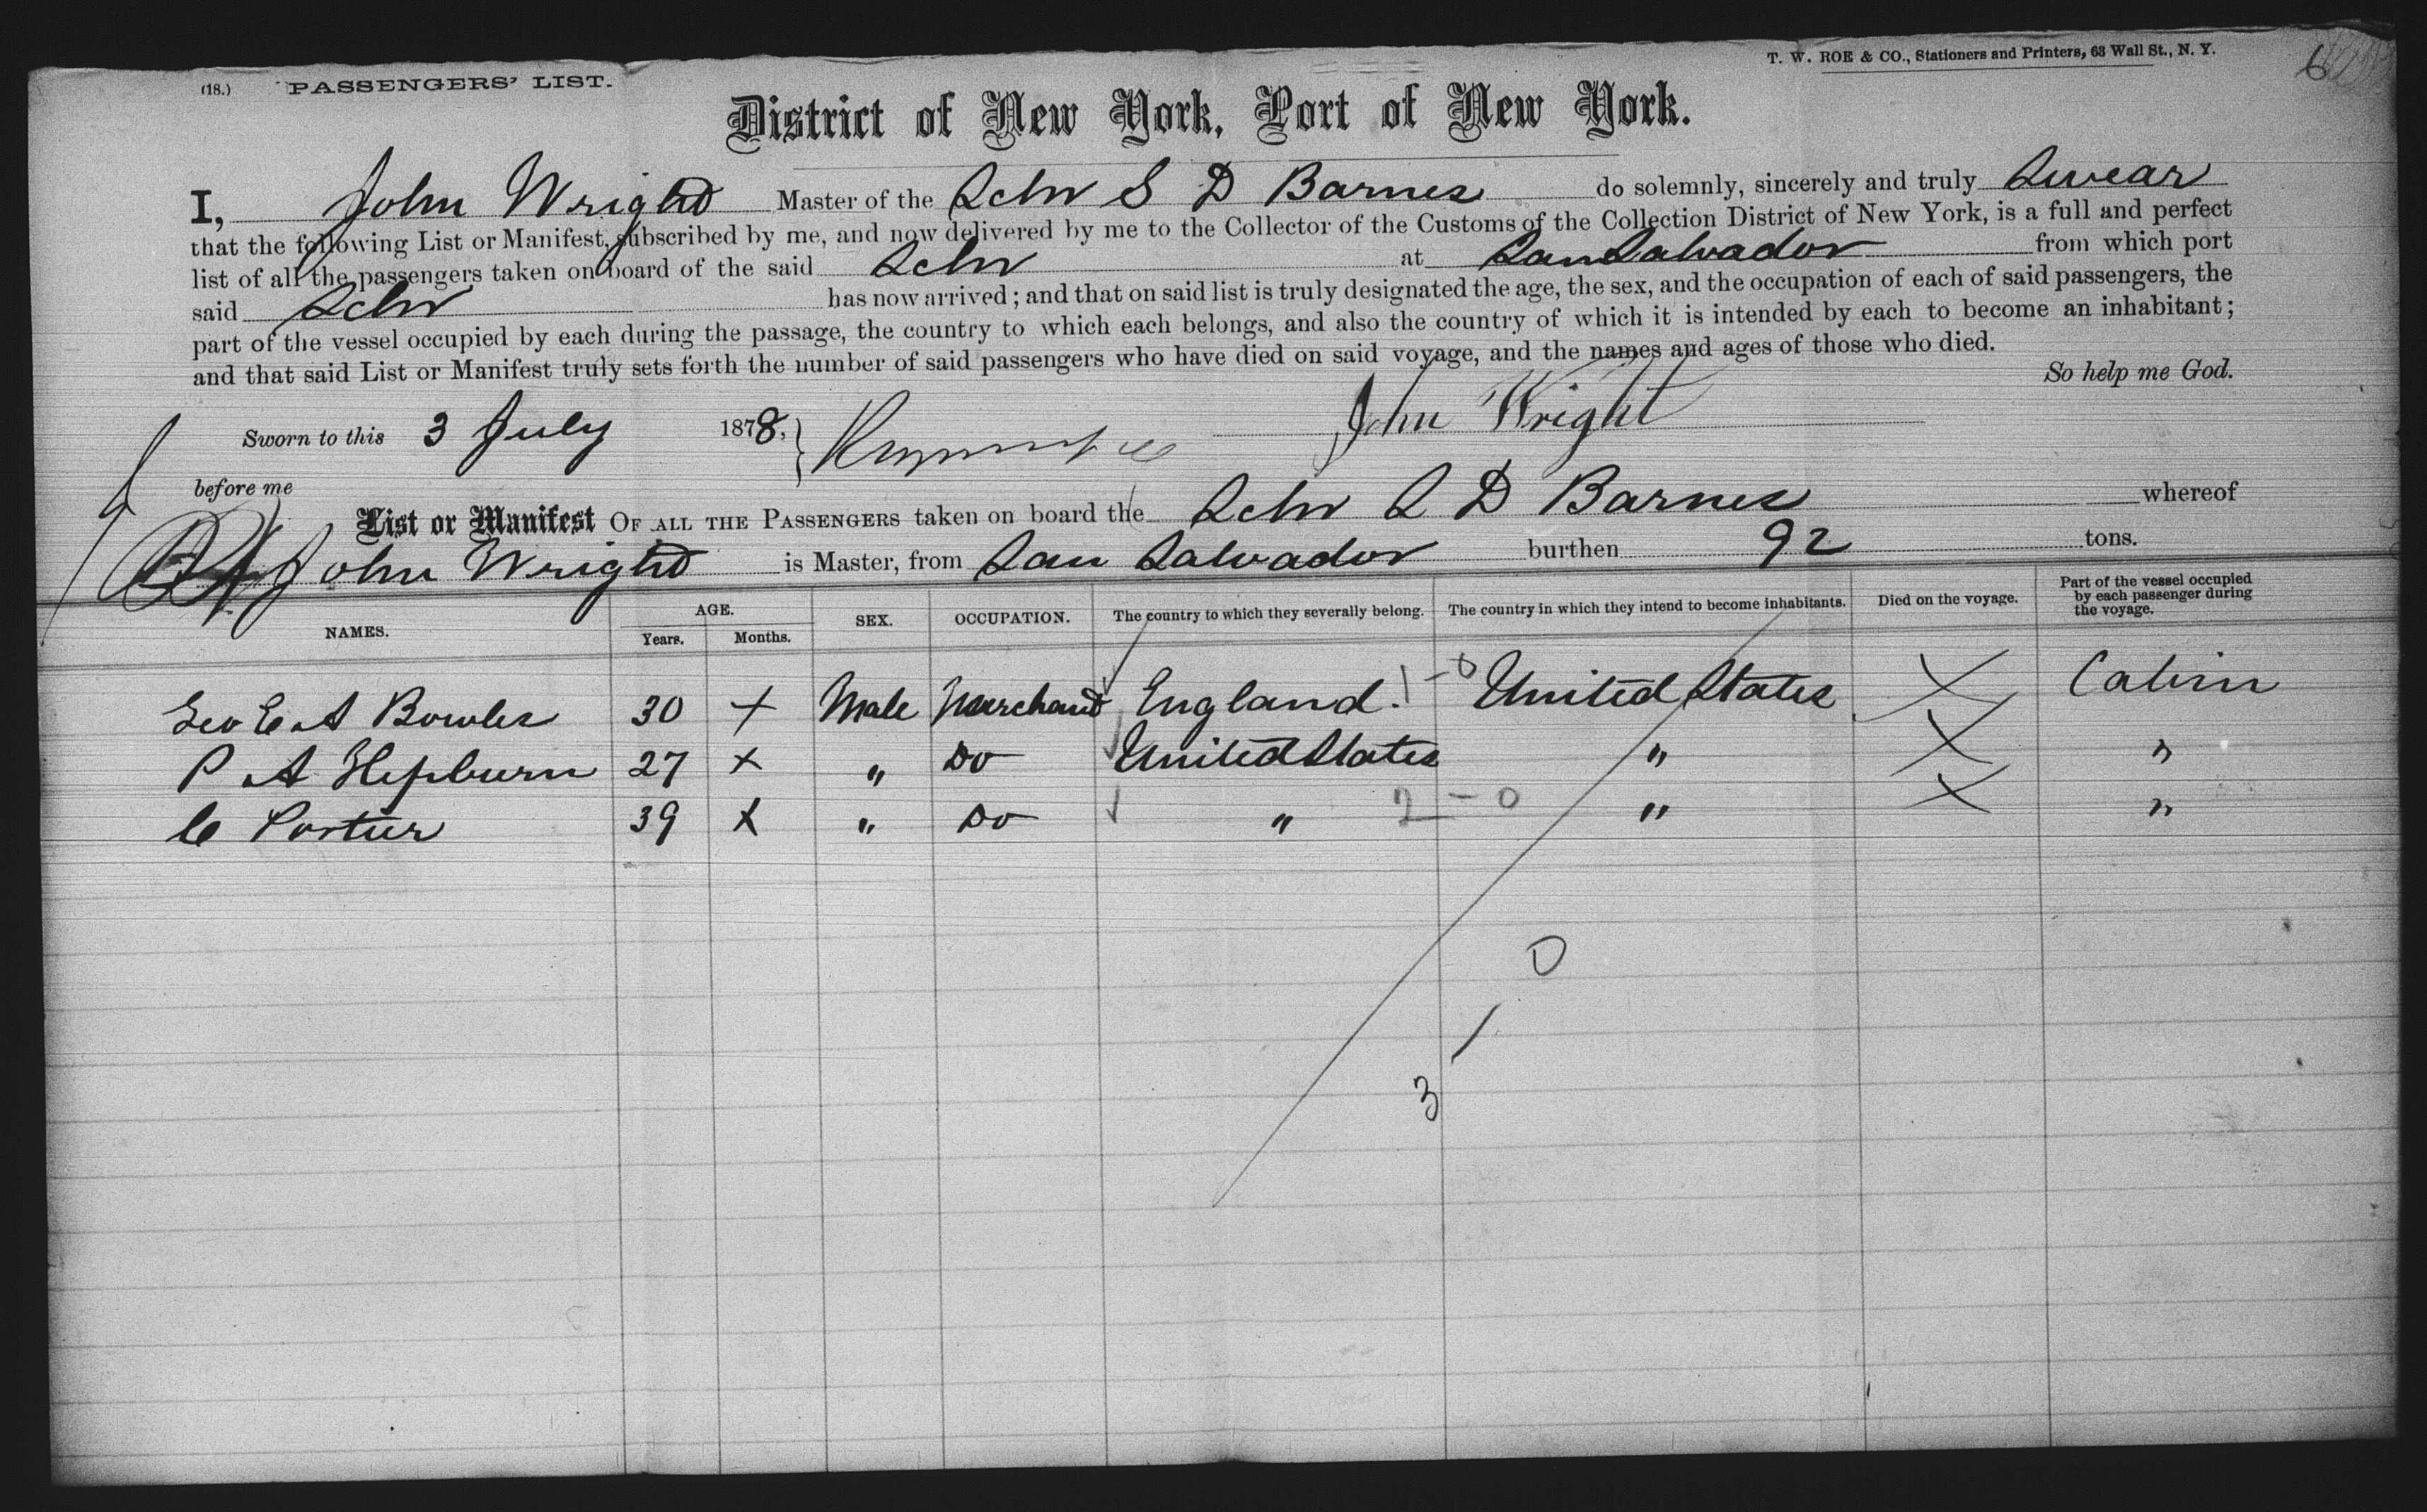 (18.) PASSENGERS' LIST. T. W. ROE & CO., Stationers and Printers, 63 Wall St., N. Y. 6
District of New York, Port of New York.
I, John Wright Master of the Schr S D Barnes do solemnly, sincerely and truly Swear
that the following List or Manifest, subscribed by me, and now delivered by me to the Collector of the Customs of the Collection District of New York, is a full and perfect
list of all the passengers taken on board of the said Schr at San Salvador from which port
said Schr has now arrived; and that on said list is truly designated the age, the sex, and the occupation of each of said passengers, the
part of the vessel occupied by each during the passage, the country to which each belongs, and also the country of which it is intended by each to become an inhabitant;
and that said List or Manifest truly sets forth the number of said passengers who have died on said voyage, and the names and ages of those who died.
So help me God.
Sworn to this 3 July 1878, John Wright
before me
List or Manifest OF ALL THE PASSENGERS taken on board the Schr S D Barnes whereof
John Wright is Master, from San Salvador burthen 92 tons.
NAMES. AGE. Years. Months. SEX. OCCUPATION. The country to which they severally belong. The country in which they intend to become inhabitants. Died on the voyage. Part of the vessel occupied by each passenger during the voyage.
Geo E A Bowles 30 + Male Merchant England. 1 - 0 United States X Cabin
P A Hepburn 27 x " Do United States " X "
C Portier 39 x " Do " 2 - 0 " X "
0
1
3